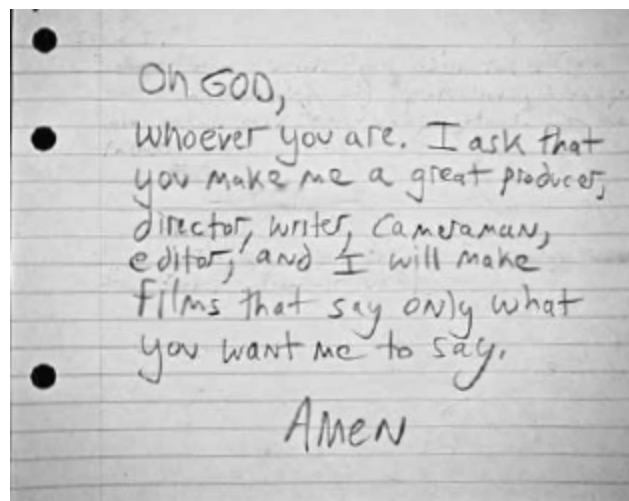 Oh GOD,
whoever you are. I ask that
you make me a great producer,
director, writer, cameraman,
editor, and I will make
films that say only what
you want me to say.
Amen